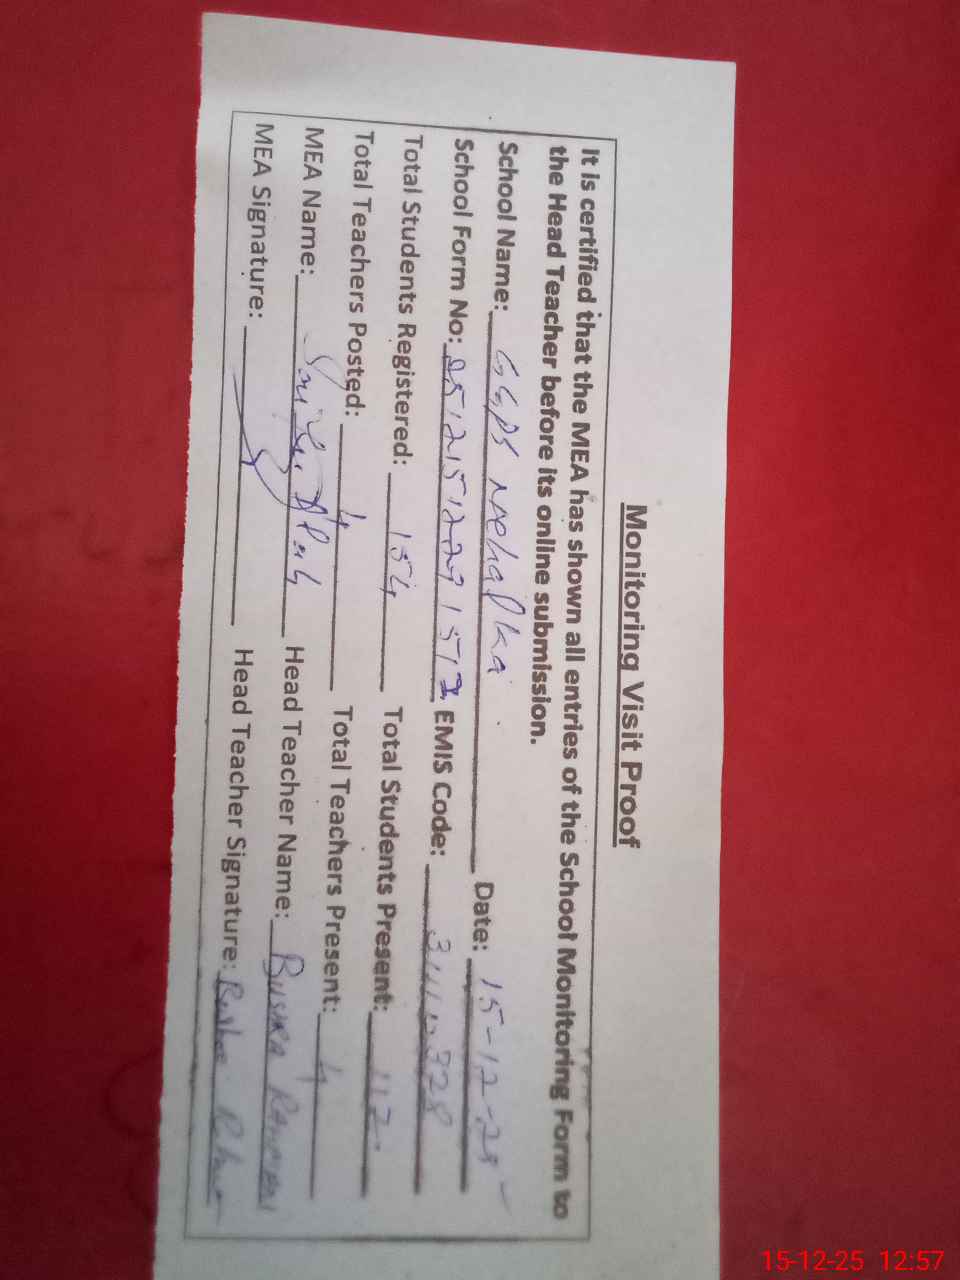 Monitoring Visit Proof
It is certified that the MEA has shown all entries of the School Monitoring Form to
the Head Teacher before its online submission.
School Name: GGPS Mehalka Date: 15-12-25
School Form No: EMIS Code:
Total Students Registered: 154 Total Students Present: 112
Total Teachers Posted: 4 Total Teachers Present: 4
MEA Name: Head Teacher Name: BUSHRA
MEA Signature: Head Teacher Signature:
15-12-25 12:57